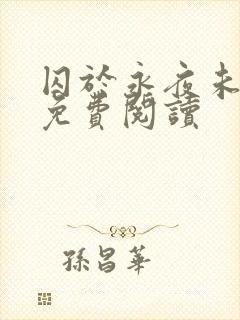 囚於永夜未
免費閱讀
孫昌華